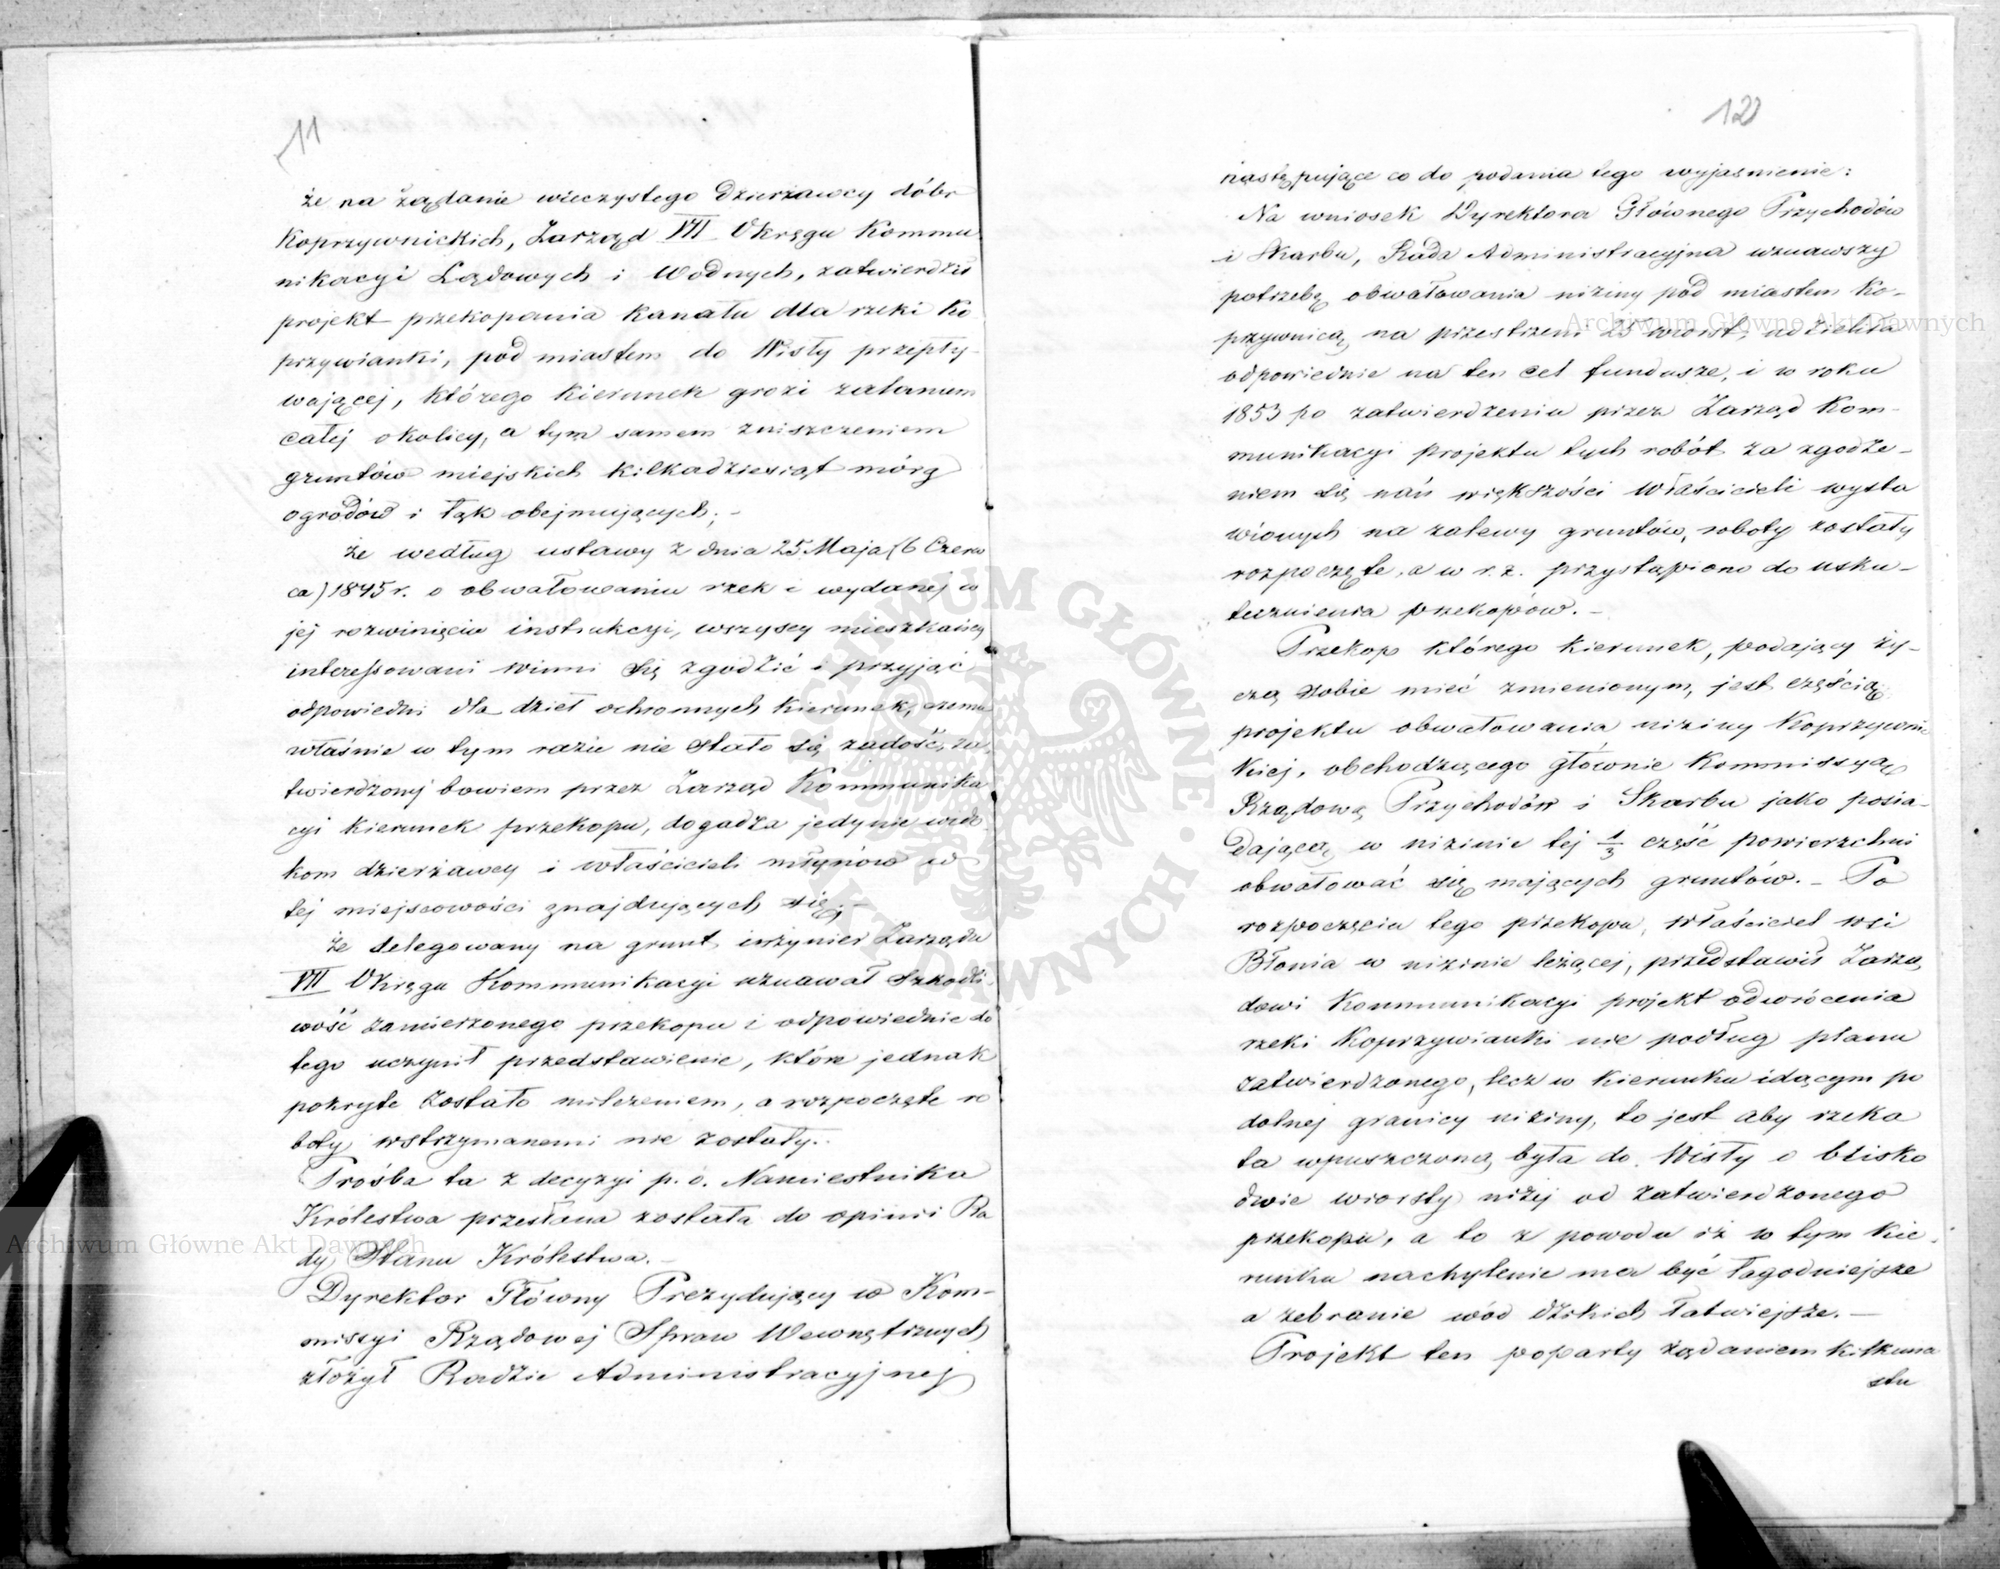 11
że na żądanie wieczystego Dzierżawcy dóbr
Koprzywnickich, Zarząd VII Okręgu Kommu
nikacyi Lądowych i Wodnych, zatwierdził
projekt przekopania kanału dla rzeki Ko
przywianki, pod miastem do Wisły przepły-
wającej, którego kierunek grozi zalaniem
całej okolicy, a tym samem zniszczeniem
gruntów miejskich kilkadziesiąt mórg
ogrodów i łąk obejmujących; -
że według ustawy z dnia 25 Maja (6 Czerw
ca) 1845 r. o obwałowaniu rzek i wydanej w
jej rozwinięciu instrukcyi, wszyscy mieszkańcy
interessowani winni się zgodzić i przyjąć
odpowiedni dla dzieł ochronnych kierunek, czemu
właśnie w tym razie nie stało się zadość, za
twierdzony bowiem przez Zarząd Kommunika
cyi kierunek przekopu, dogadza jedynie wido
kom dzierżawcy i właścicieli młynów w
tej miejscowości znajdujących się; -
że delegowany na grunt inżynier Zarządu
VII Okręgu Kommunikacyi uznawał szkodli
wość zamierzonego przekopu i odpowiednie do
tego uczynił przedstawienie, które jednak
pokryte zostało milczeniem, a rozpoczęte ro
boty wstrzymanemi nie zostały.
Prośba ta z decyzyi p. o. Namiestnika
Królestwa przesłana została do opinii Ra
dy Stanu Królestwa. -
Dyrektor Główny Prezydujący w Kom-
missyi Rządowej Spraw Wewnętrznych
złożył Radzie Administracyjnej
12
następujące co do podania tego wyjasnienie:
Na wniosek Dyrektora Głównego Przychodów
i Skarbu, Rada Administracyjna uznawszy
potrzebę obwałowania niziny pod miastem Ko-
przywnicą, na przestrzeni 25 wiorst, udzieliła
odpowiednie na ten cel fundusze, i w roku
1853 po zatwierdzeniu przez Zarząd Kom-
munikacyi projektu tych robót za zgodze-
niem się nań większości właścicieli wysta
wionych na zalewy gruntów, roboty zostały
rozpoczęte, a w r. z. przystąpiono do usku-
tecznienia przekopów. -
Przekop którego kierunek, podający ży-
czą sobie mieć zmienionym, jest częścią
projektu obwałowania niziny Koprzywnic
kiej, obchodzącego głównie Kommissyą
Rządową Przychodów i Skarbu jako posia-
dającą w nizinie tej 1/3 część powierzchni
obwałować się mających gruntów. - Po
rozpoczęciu tego przekopu, właściciel wsi
Błonia w nizinie leżącej, przedstawił Zarzą
dowi Kommunikacyi projekt odwrócenia
rzeki Koprzywianki nie podług planu
zatwierdzonego, lecz w kierunku idącym po
dolnej granicy niziny, to jest aby rzeka
ta wpuszczoną była do Wisły o blisko
dwie wiorsty niżej od zatwierdzonego
przekopu, a to z powodu iż w tym kie
runku nachylenie ma być łagodniejsze
a zebranie wód dzikich łatwiejsze. -
Projekt ten poparty żądaniem kilkuna
stu
Archiwum Główne Akt Dawnych
Archiwum Główne Akt Dawnych
ARCHIWUM GŁÓWNE AKT DAWNYCH